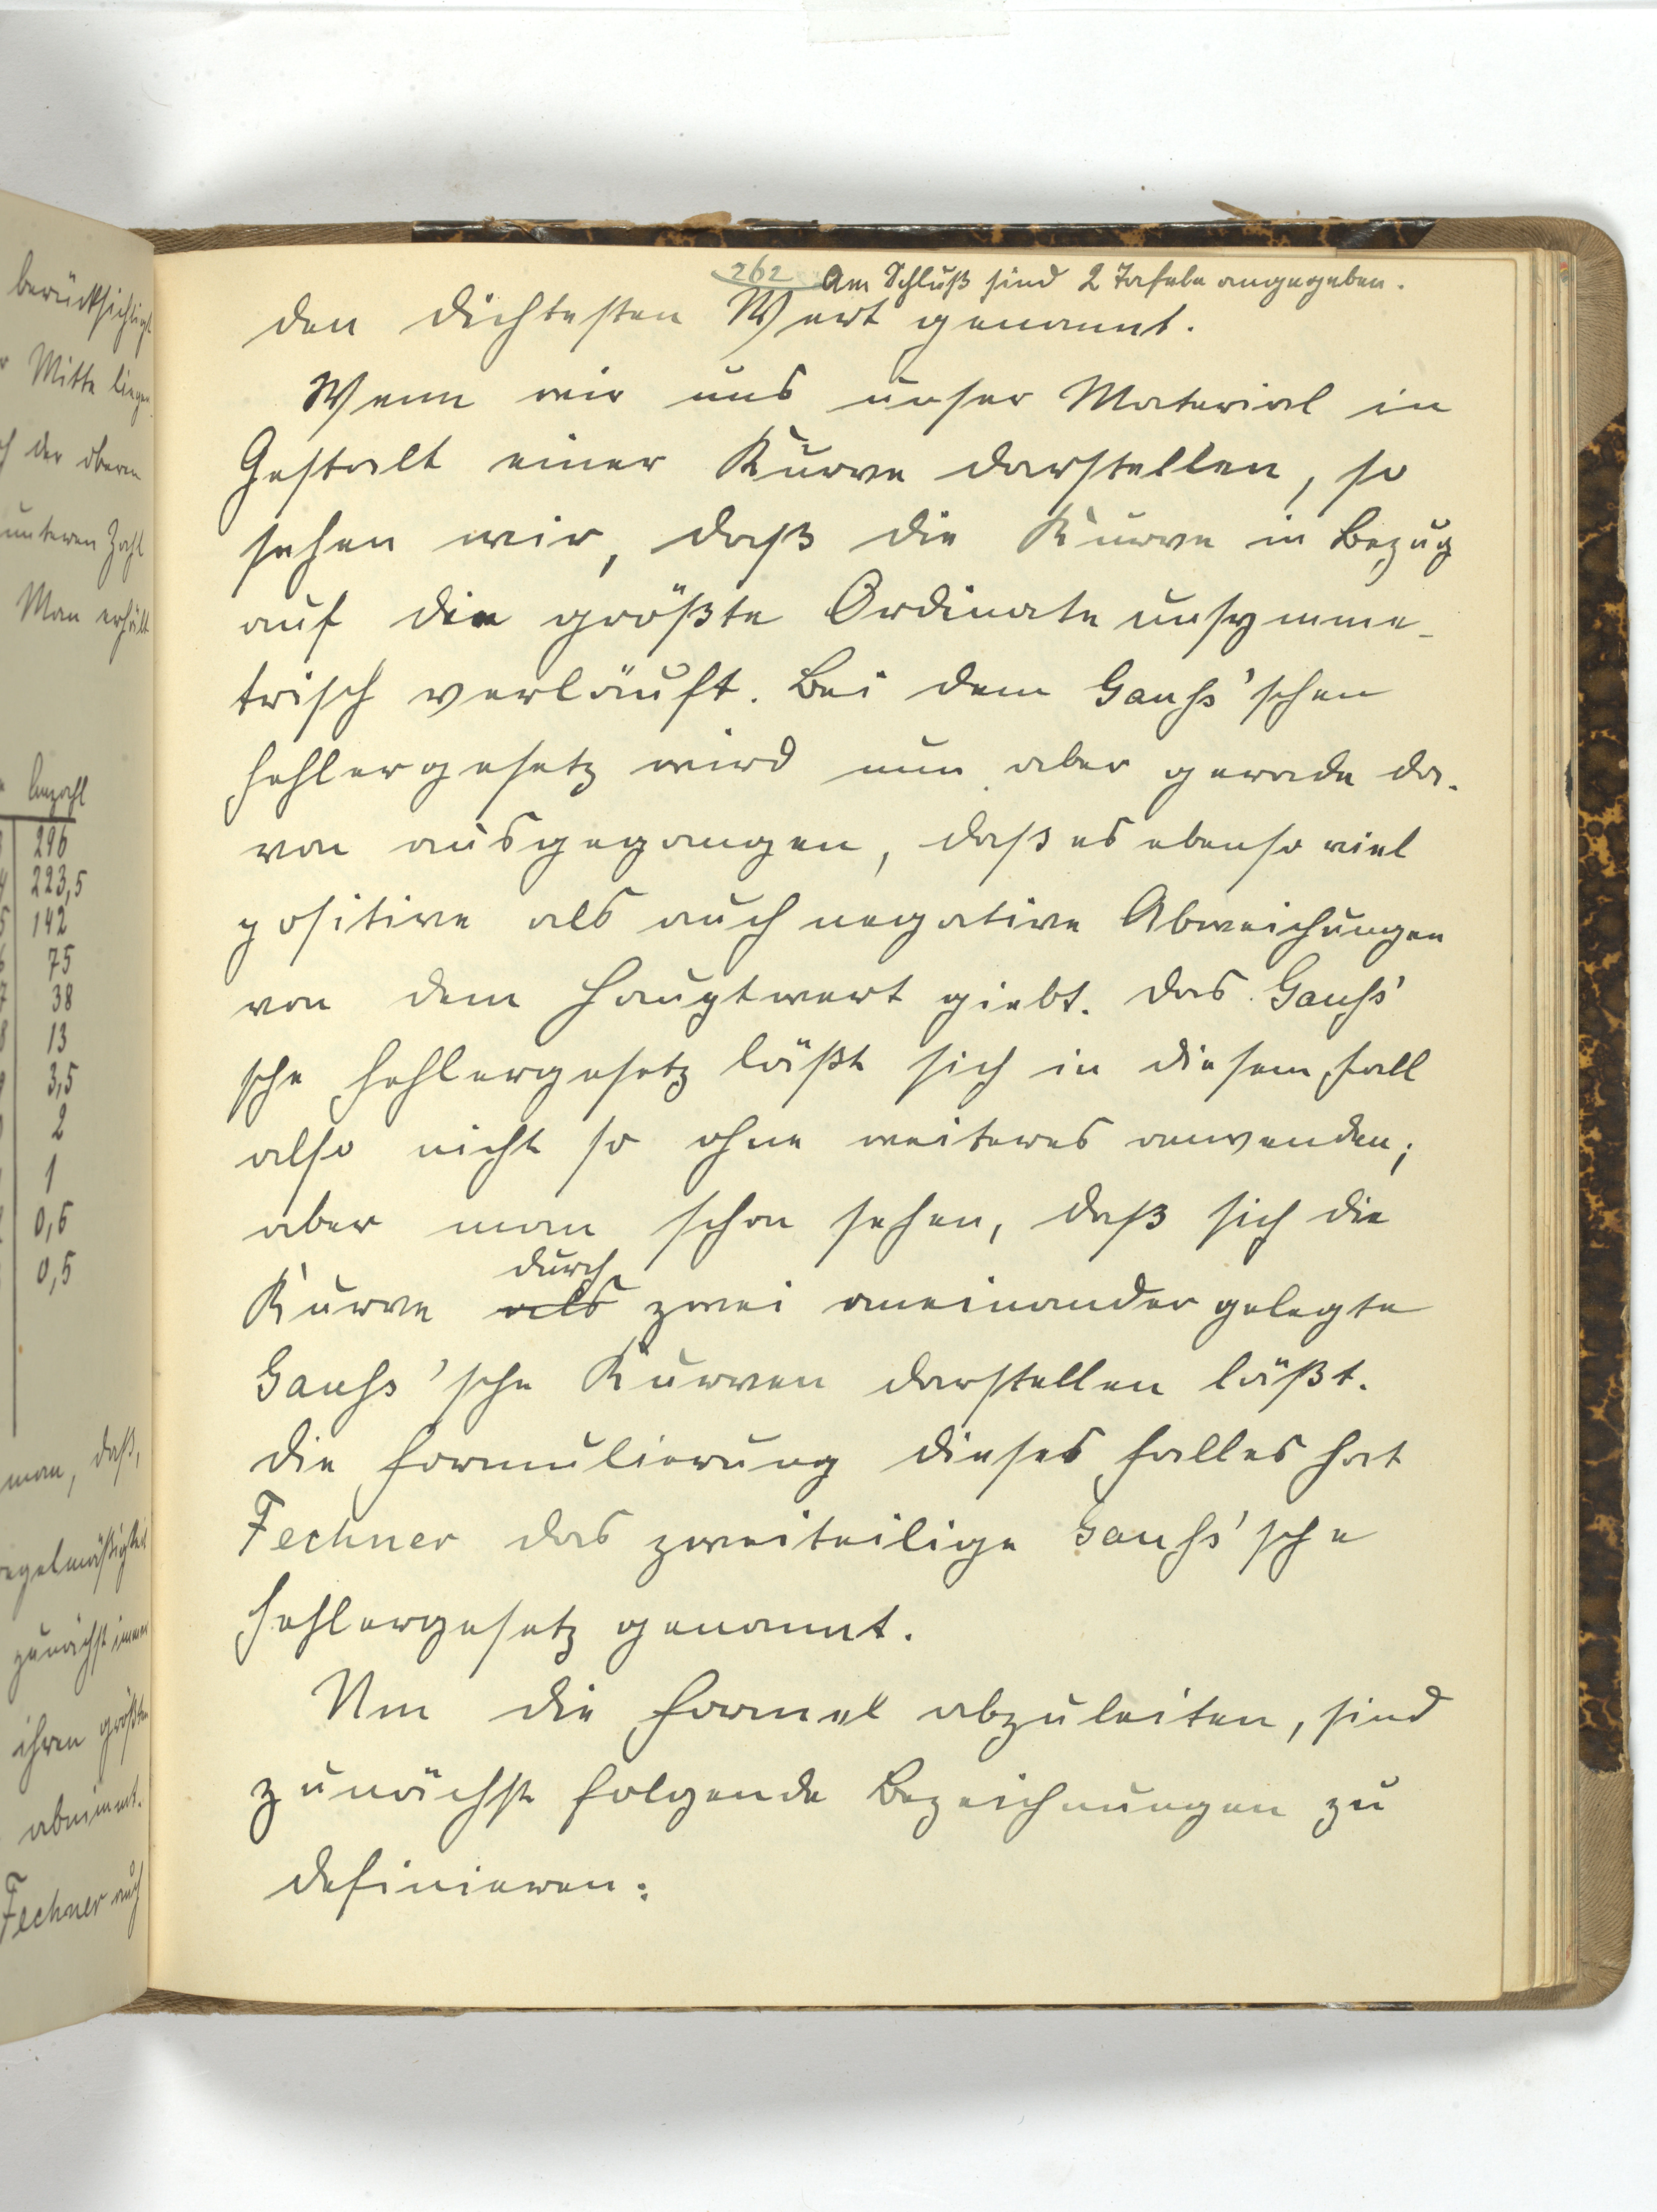 berücksichtigt
Mitte liegen
der oberen
unteren Zahl
Man erhält
Anzahl
296
223,5
142
75
38
13
3,5
2
1
0,5
0,5
man, daß,
zunächst immer
ihren größten
abnimmt.
Fechner auch
262 Am Schluß sind 2 Tafeln angegeben.
den dichtesten Wert genannt.
Wenn wir uns unser Material in
Gestalt einer Kurve darstellen, so
sehen wir, daß die Kurve in Bezug
auf die größte Ordinate unsymme-
trisch verläuft. Bei dem Gauss'schen
Fehlergesetz wird nun aber gerade da-
von ausgegangen, daß es ebenso viel
positive als auch negative Abweichungen
von dem Hauptwert giebt. Das Gauss'
sche Fehlergesetz läßt sich in diesem Fall
also nicht so ohne weiteres anwenden;
aber man schon sehen, daß sich die
durch
Kurve als zwei aneinander gelegte
Gauss'sche Kurven darstellen läßt.
Die Formulierung dieses Falles hat
Fechner das zweiteilige Gauss'sche
Fehlergesetz genannt.
Um die Formel abzuleiten, sind
zunächst folgende Bezeichnungen zu
definieren: